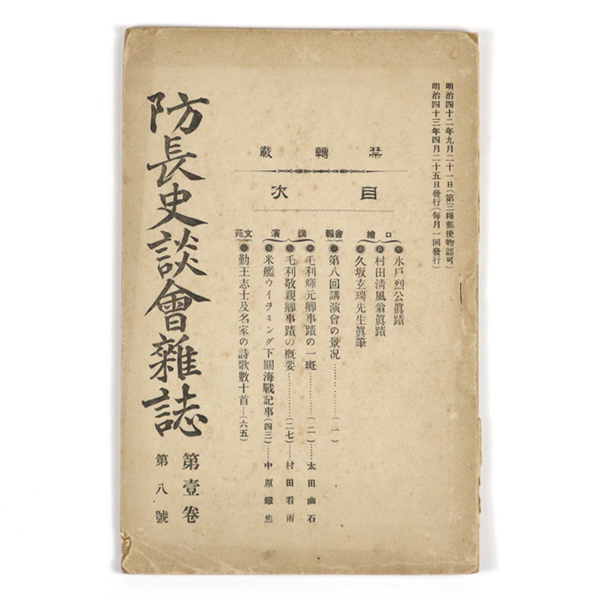 明治四十二年九月二十一日(第三種郵便物認可)
明治四十三年四月二十五日發行(毎月一回發行)
禁轉載
目次
口繪
●水戸烈公眞蹟
●村田清風翁眞蹟
●久坂玄瑞先生眞筆
會報
●第八回講演會の景况…………(一)
講演
●毛利輝元卿事蹟の一斑………(二)……太田幽石
●毛利敬親卿事蹟の概要…………(二七)……村田看雨
●米艦ウイヲミング下關海戰記事(四三)……中原鐵焦
文苑
●勤王志士及名家の詩歌數十首…(六五)
防長史談會雜誌
第壹卷
第八號